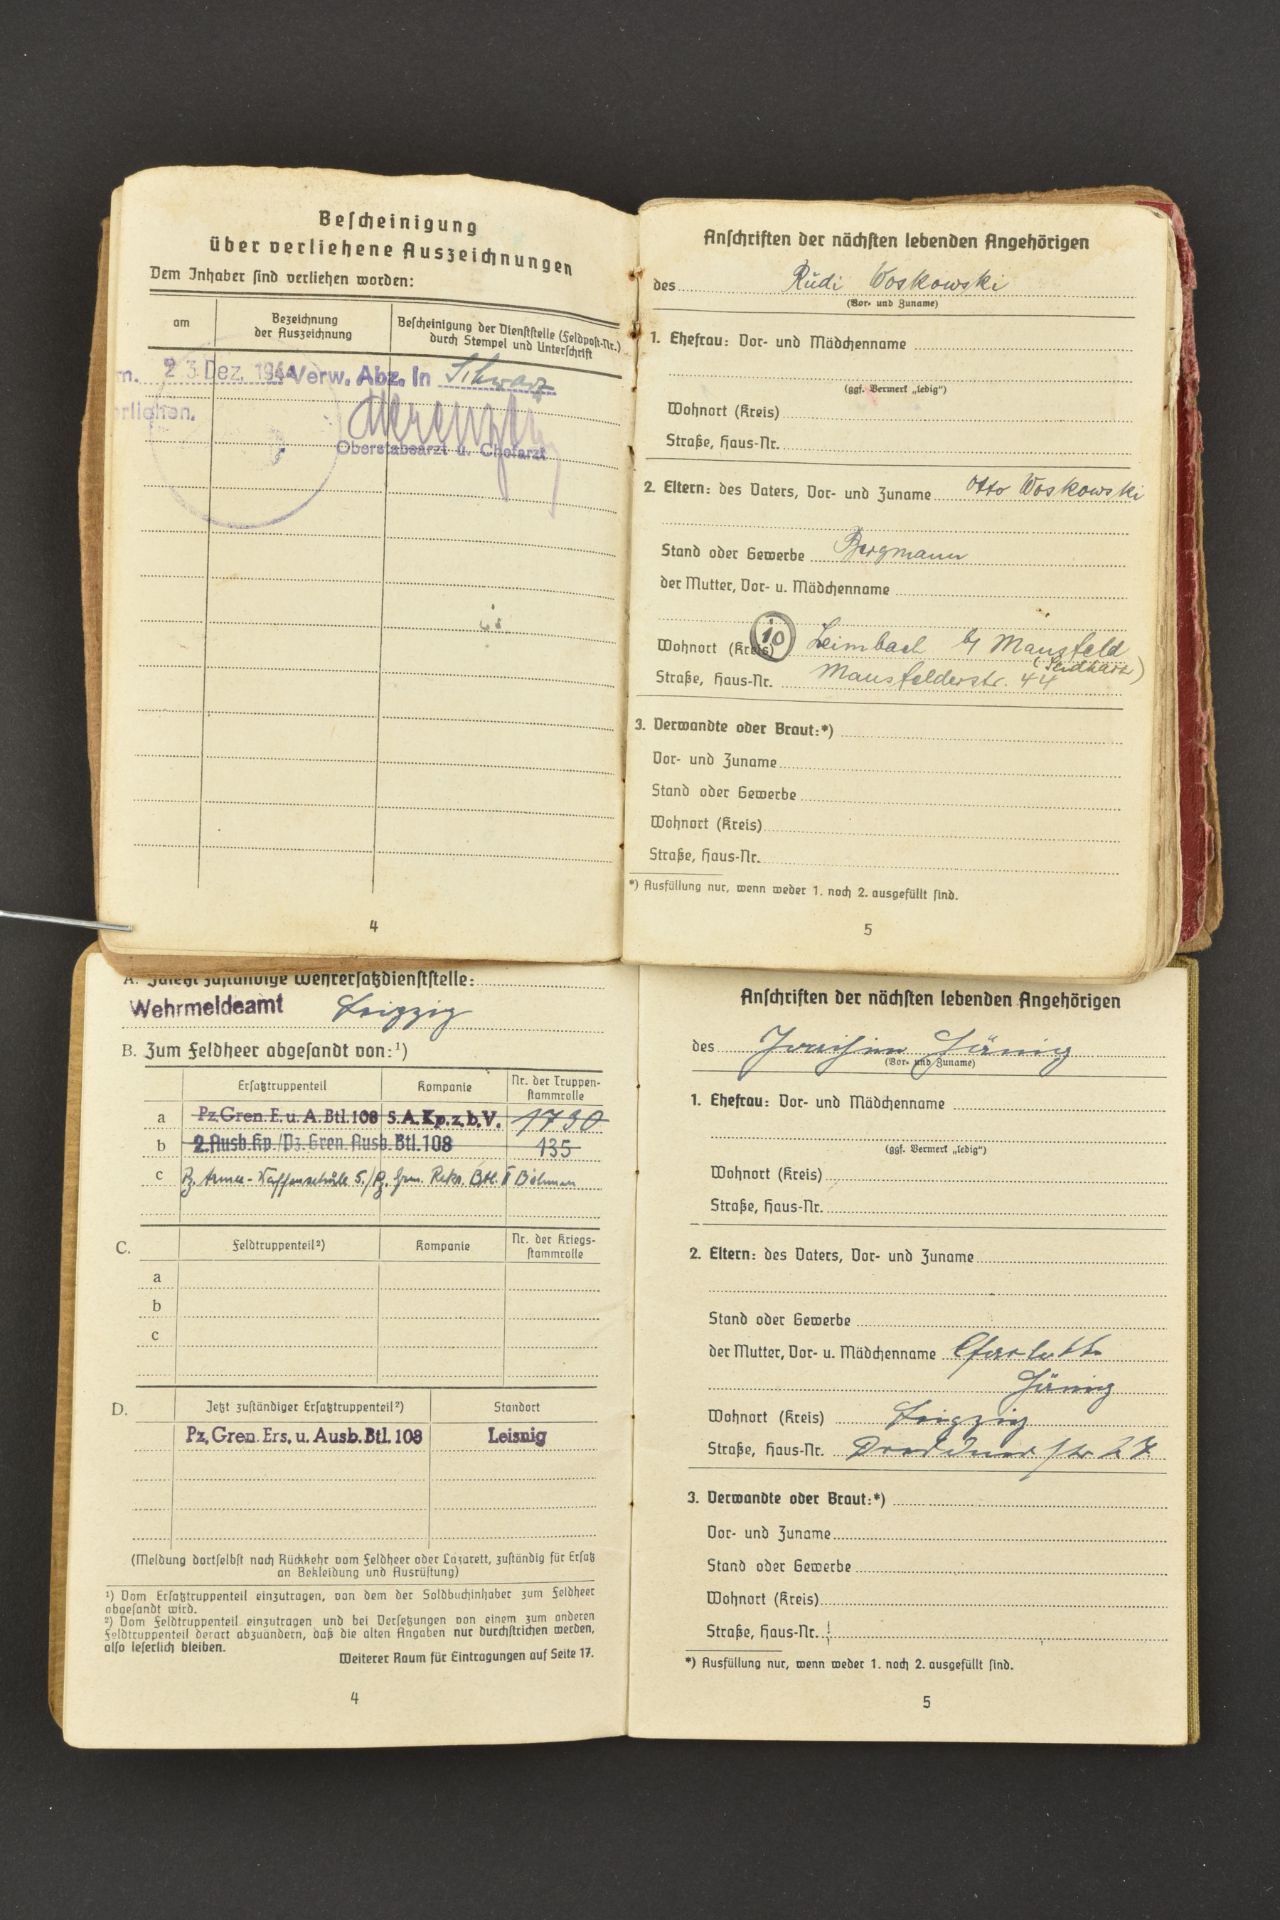 Bescheinigung
über verliehene Auszeichnungen
Dem Inhaber sind verliehen worden:
am
Bezeichnung
der Auszeichnung
Bescheinigung der Dienststelle (Feldpost-Nr.)
durch Stempel und Unterschrift
m. 23. Dez. 1944 Verw. Abz. In Schwarz
rliehen.
Oberstabsarzt u. Chefarzt
4
Anschriften der nächsten lebenden Angehörigen
des Rudi Woskowski
(Vor- und Zuname)
1. Ehefrau: Vor- und Mädchenname
(ggf. Vermerk „ledig“)
Wohnort (Kreis)
Straße, Haus-Nr.
2. Eltern: des Vaters, Vor- und Zuname Otto Woskowski
Stand oder Gewerbe Bergmann
der Mutter, Vor- u. Mädchenname
Wohnort (Kreis) 10 Leimbach b/ Mansfeld
(Südharz)
Straße, Haus-Nr. Mansfelderstr. 44
3. Verwandte oder Braut:*)
Vor- und Zuname
Stand oder Gewerbe
Wohnort (Kreis)
Straße, Haus-Nr.
*) Ausfüllung nur, wenn weder 1. noch 2. ausgefüllt sind.
5
A. Zuletzt zuständige Wehrersatzdienststelle:
Wehrmeldeamt Leipzig
B. Zum Feldheer abgesandt von:¹)
Ersatztruppenteil
Kompanie
Nr. der Truppen-
stammrolle
a Pz.Gren.E.u.A.Btl.108 S.A.Kp.z.b.V. 1730
b 2.Ausb.Kp./Pz.Gren.Ausb.Btl.108 135
c Pz. Armee-Waffenschule 5./Pz. Gren. Rekr. Btl. II Böhmen
C.
Feldtruppenteil²)
Kompanie
Nr. der Kriegs-
stammrolle
a
b
c
D.
Jetzt zuständiger Ersatztruppenteil²)
Standort
Pz.Gren.Ers.u.Ausb.Btl.108 Leisnig
(Meldung dortselbst nach Rückkehr vom Feldheer oder Lazarett, zuständig für Ersatz
an Bekleidung und Ausrüstung)
¹) Vom Ersatztruppenteil einzutragen, von dem der Soldbuchinhaber zum Feldheer
abgesandt wird.
²) Vom Feldtruppenteil einzutragen und bei Versetzungen von einem zum anderen
Feldtruppenteil derart abzuändern, daß die alten Angaben nur durchstrichen werden,
also leserlich bleiben.
Weiterer Raum für Eintragungen auf Seite 17.
4
Anschriften der nächsten lebenden Angehörigen
des Joachim Jänig
(Vor- und Zuname)
1. Ehefrau: Vor- und Mädchenname
(ggf. Vermerk „ledig“)
Wohnort (Kreis)
Straße, Haus-Nr.
2. Eltern: des Vaters, Vor- und Zuname
Stand oder Gewerbe
der Mutter, Vor- u. Mädchenname Charlotte
Jänig
Wohnort (Kreis) Leipzig
Straße, Haus-Nr. Dresdner str 27
3. Verwandte oder Braut:*)
Vor- und Zuname
Stand oder Gewerbe
Wohnort (Kreis)
Straße, Haus-Nr.
*) Ausfüllung nur, wenn weder 1. noch 2. ausgefüllt sind.
5